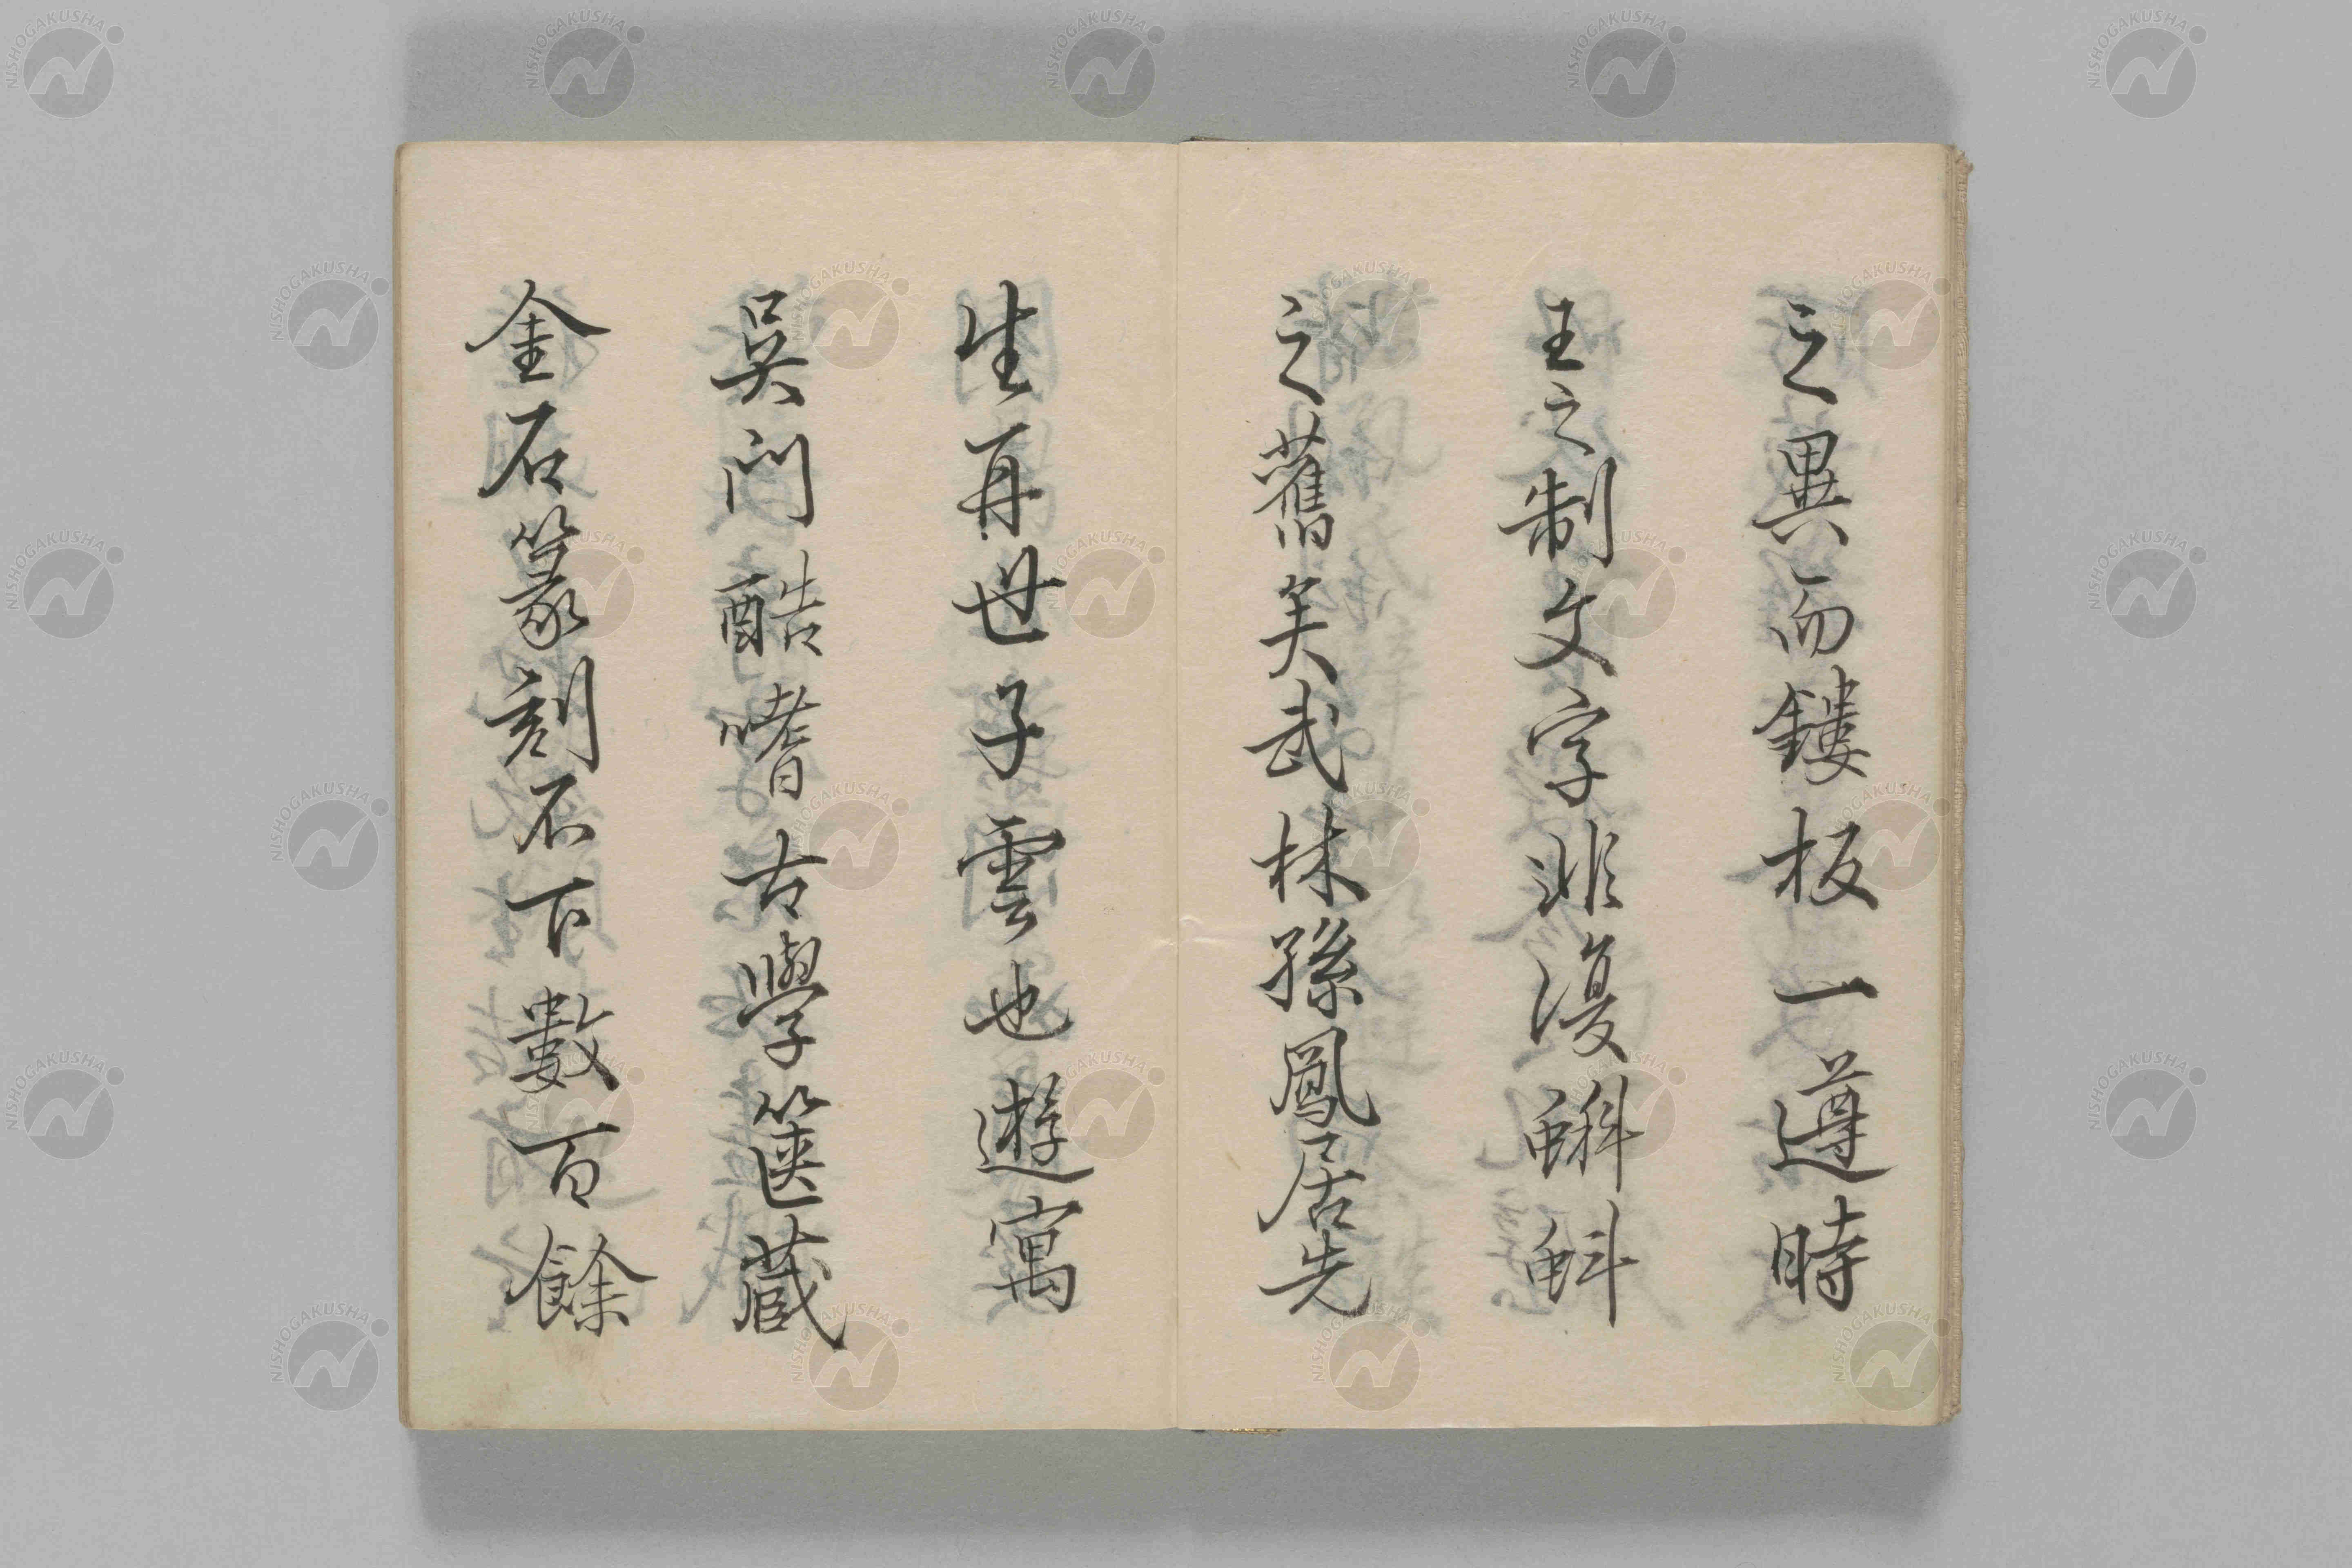 之異而鏤板一遵時
王之制文字非復蝌蚪
之舊矣武林孫鳳居先
生再世子雲也遊寓
吳門酷嗜古學篋藏
金石篆刻不下數百餘
NISHOGAKUSHA